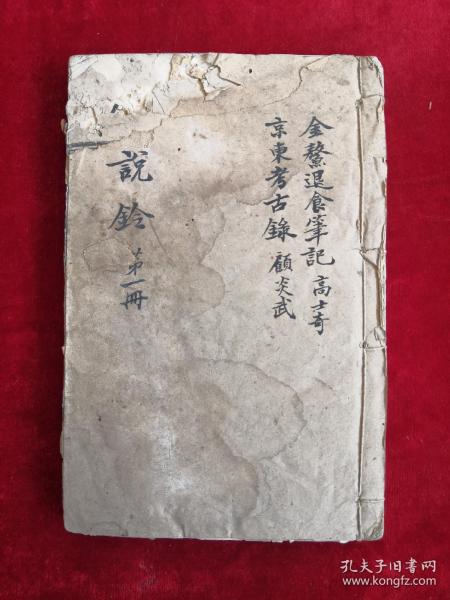 金鰲退食筆記 高士奇
京東考古錄 顧炎武
說鈴 第一冊
孔夫子旧书网
www.kongfz.com